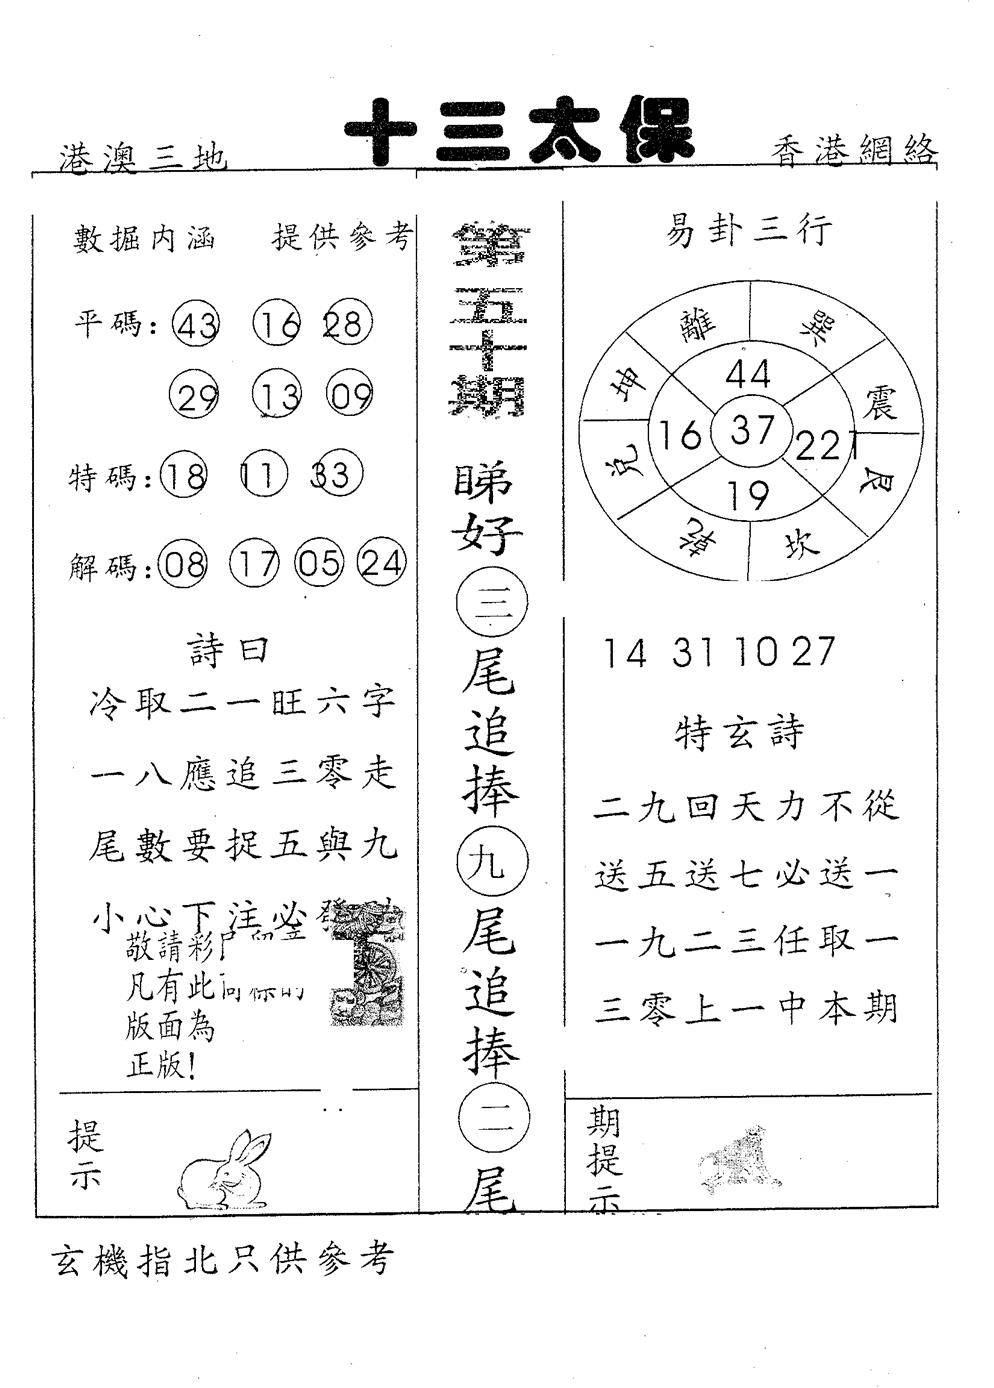 港澳三地
十三太保
香港網絡
數据内涵 提供參考
平碼: 43 16 28
29 13 09
特碼: 18 11 33
解碼: 08 17 05 24
詩曰
冷取二一旺六字
一八應追三零走
尾數要捉五與九
小心下注必發
敬請彩
凡有此
版面為
正版!
提示
第五十期
睇好三尾追捧九尾追捧二尾
易卦三行
離 巽
坤 44 震
16 37 221
兌 19 艮
乾 坎
14 31 10 27
特玄詩
二九回天力不從
送五送七必送一
一九二三任取一
三零上一中本期
期提示
玄機指北只供參考